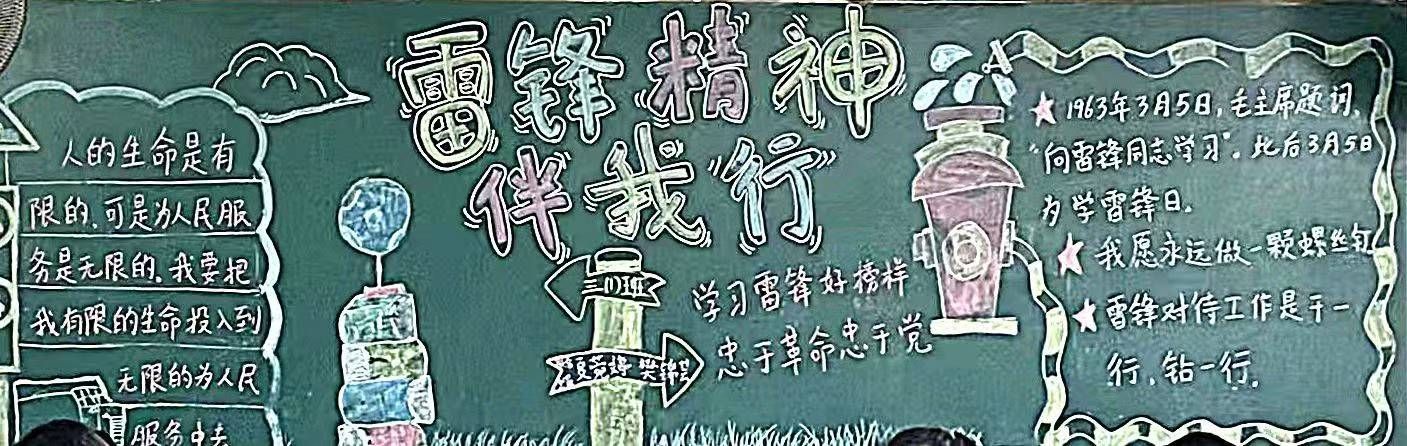 雷锋精神
伴我行
人的生命是有
限的,可是为人民服
务是无限的,我要把
我有限的生命投入到
无限的为人民
服务中去
三(1)班
学习雷锋好榜样
忠于革命忠于党
★1963年3月5日,毛主席题词,
“向雷锋同志学习”。此后3月5日
为学雷锋日。
★我愿永远做一颗螺丝钉
★雷锋对待工作是干一
行,钻一行。